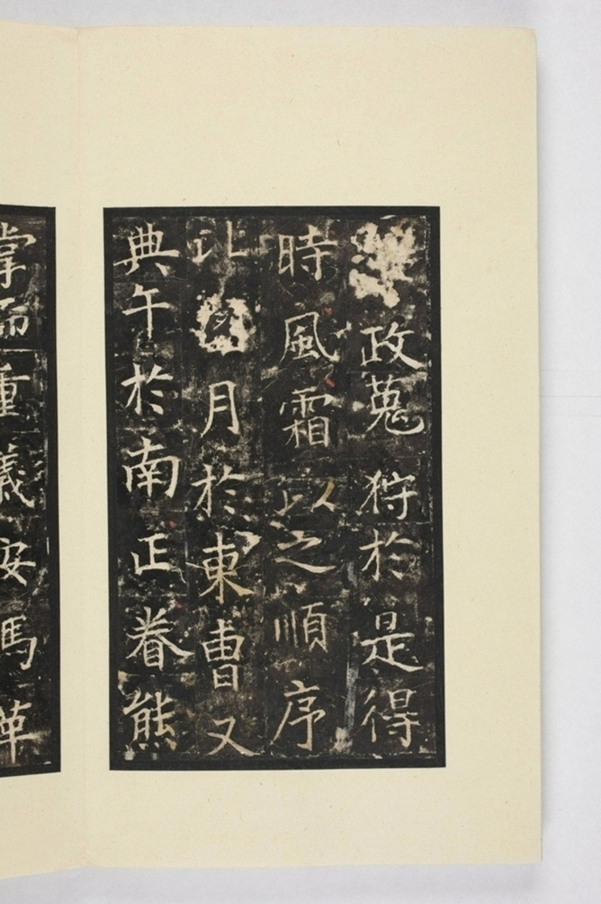 政蒐狩於是得
時風霜以之順序
月於東曹又
典午於南正眷熊
掌而重義安馬革